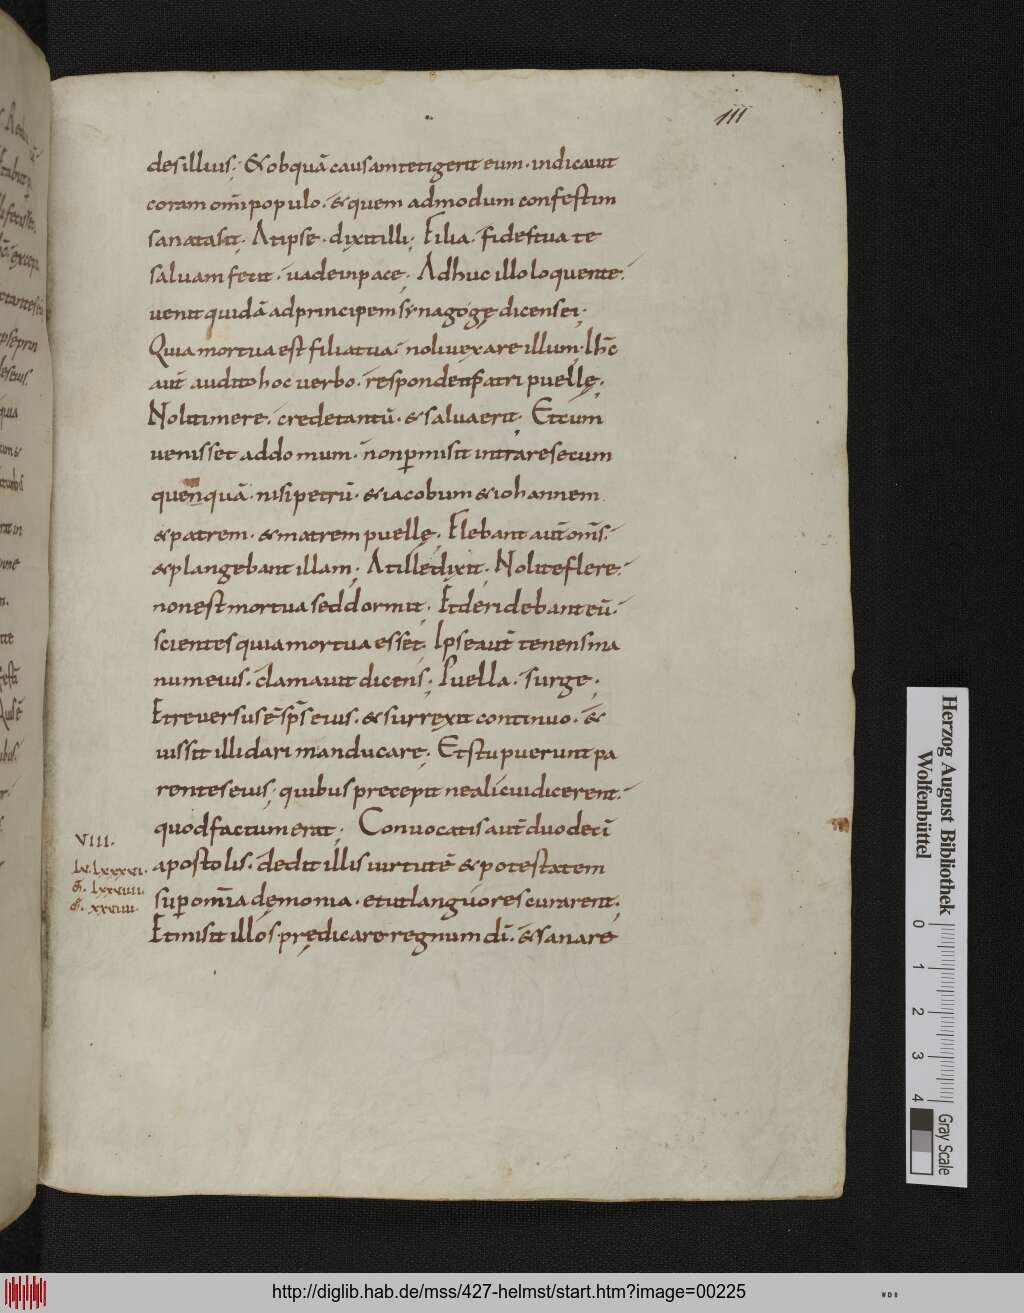 111
des illius; & ob quā causam tetigerit eum· indicauit
coram om̄i populo· & quem admodum confestim
sanata sit; At ipse· dixit illi; Filia· fides tua te
saluam fecit· uade in pace; Adhuc illo loquente·
uenit quidā ad principem synagogę dicens ei·
Quia mortua est filia tua· noli uexare illum; Ih̄c
aut̄ audito hoc uerbo· respondet patri puellę·
Noli timere· crede tantū· & salua erit; Et cum
uenisset ad domum· non ꝑmisit intrare secum
quenquā· nisi petrū· & iacobum & iohannem
& patrem· & matrem puellę; Flebant aut̄ om̄s·
& plangebant illam; At ille dixit; Nolite flere·
non est mortua sed dormit; Et deridebant eū·
scientes quia mortua esset; Ipse aut̄ tenens ma
num eius· clamauit dicens; Puella· surge;
Et reuersus ē sp̄s eius· & surrexit continuo· &
iussit illi dari manducare; Et stupuerunt pa
rentes eius; quibus precepit ne alicui dicerent·
quod factum erat; Conuocatis aut̄ duodecī
VIII.
apostolis· dedit illis uirtutē & potestatem
suꝑ om̄ia dęmonia· et ut languores curarent;
Et misit illos prędicare regnum dī· & sanare
Herzog August Bibliothek
Wolfenbüttel
0 1 2 3 4
Gray Scale
http://diglib.hab.de/mss/427-helmst/start.htm?image=00225